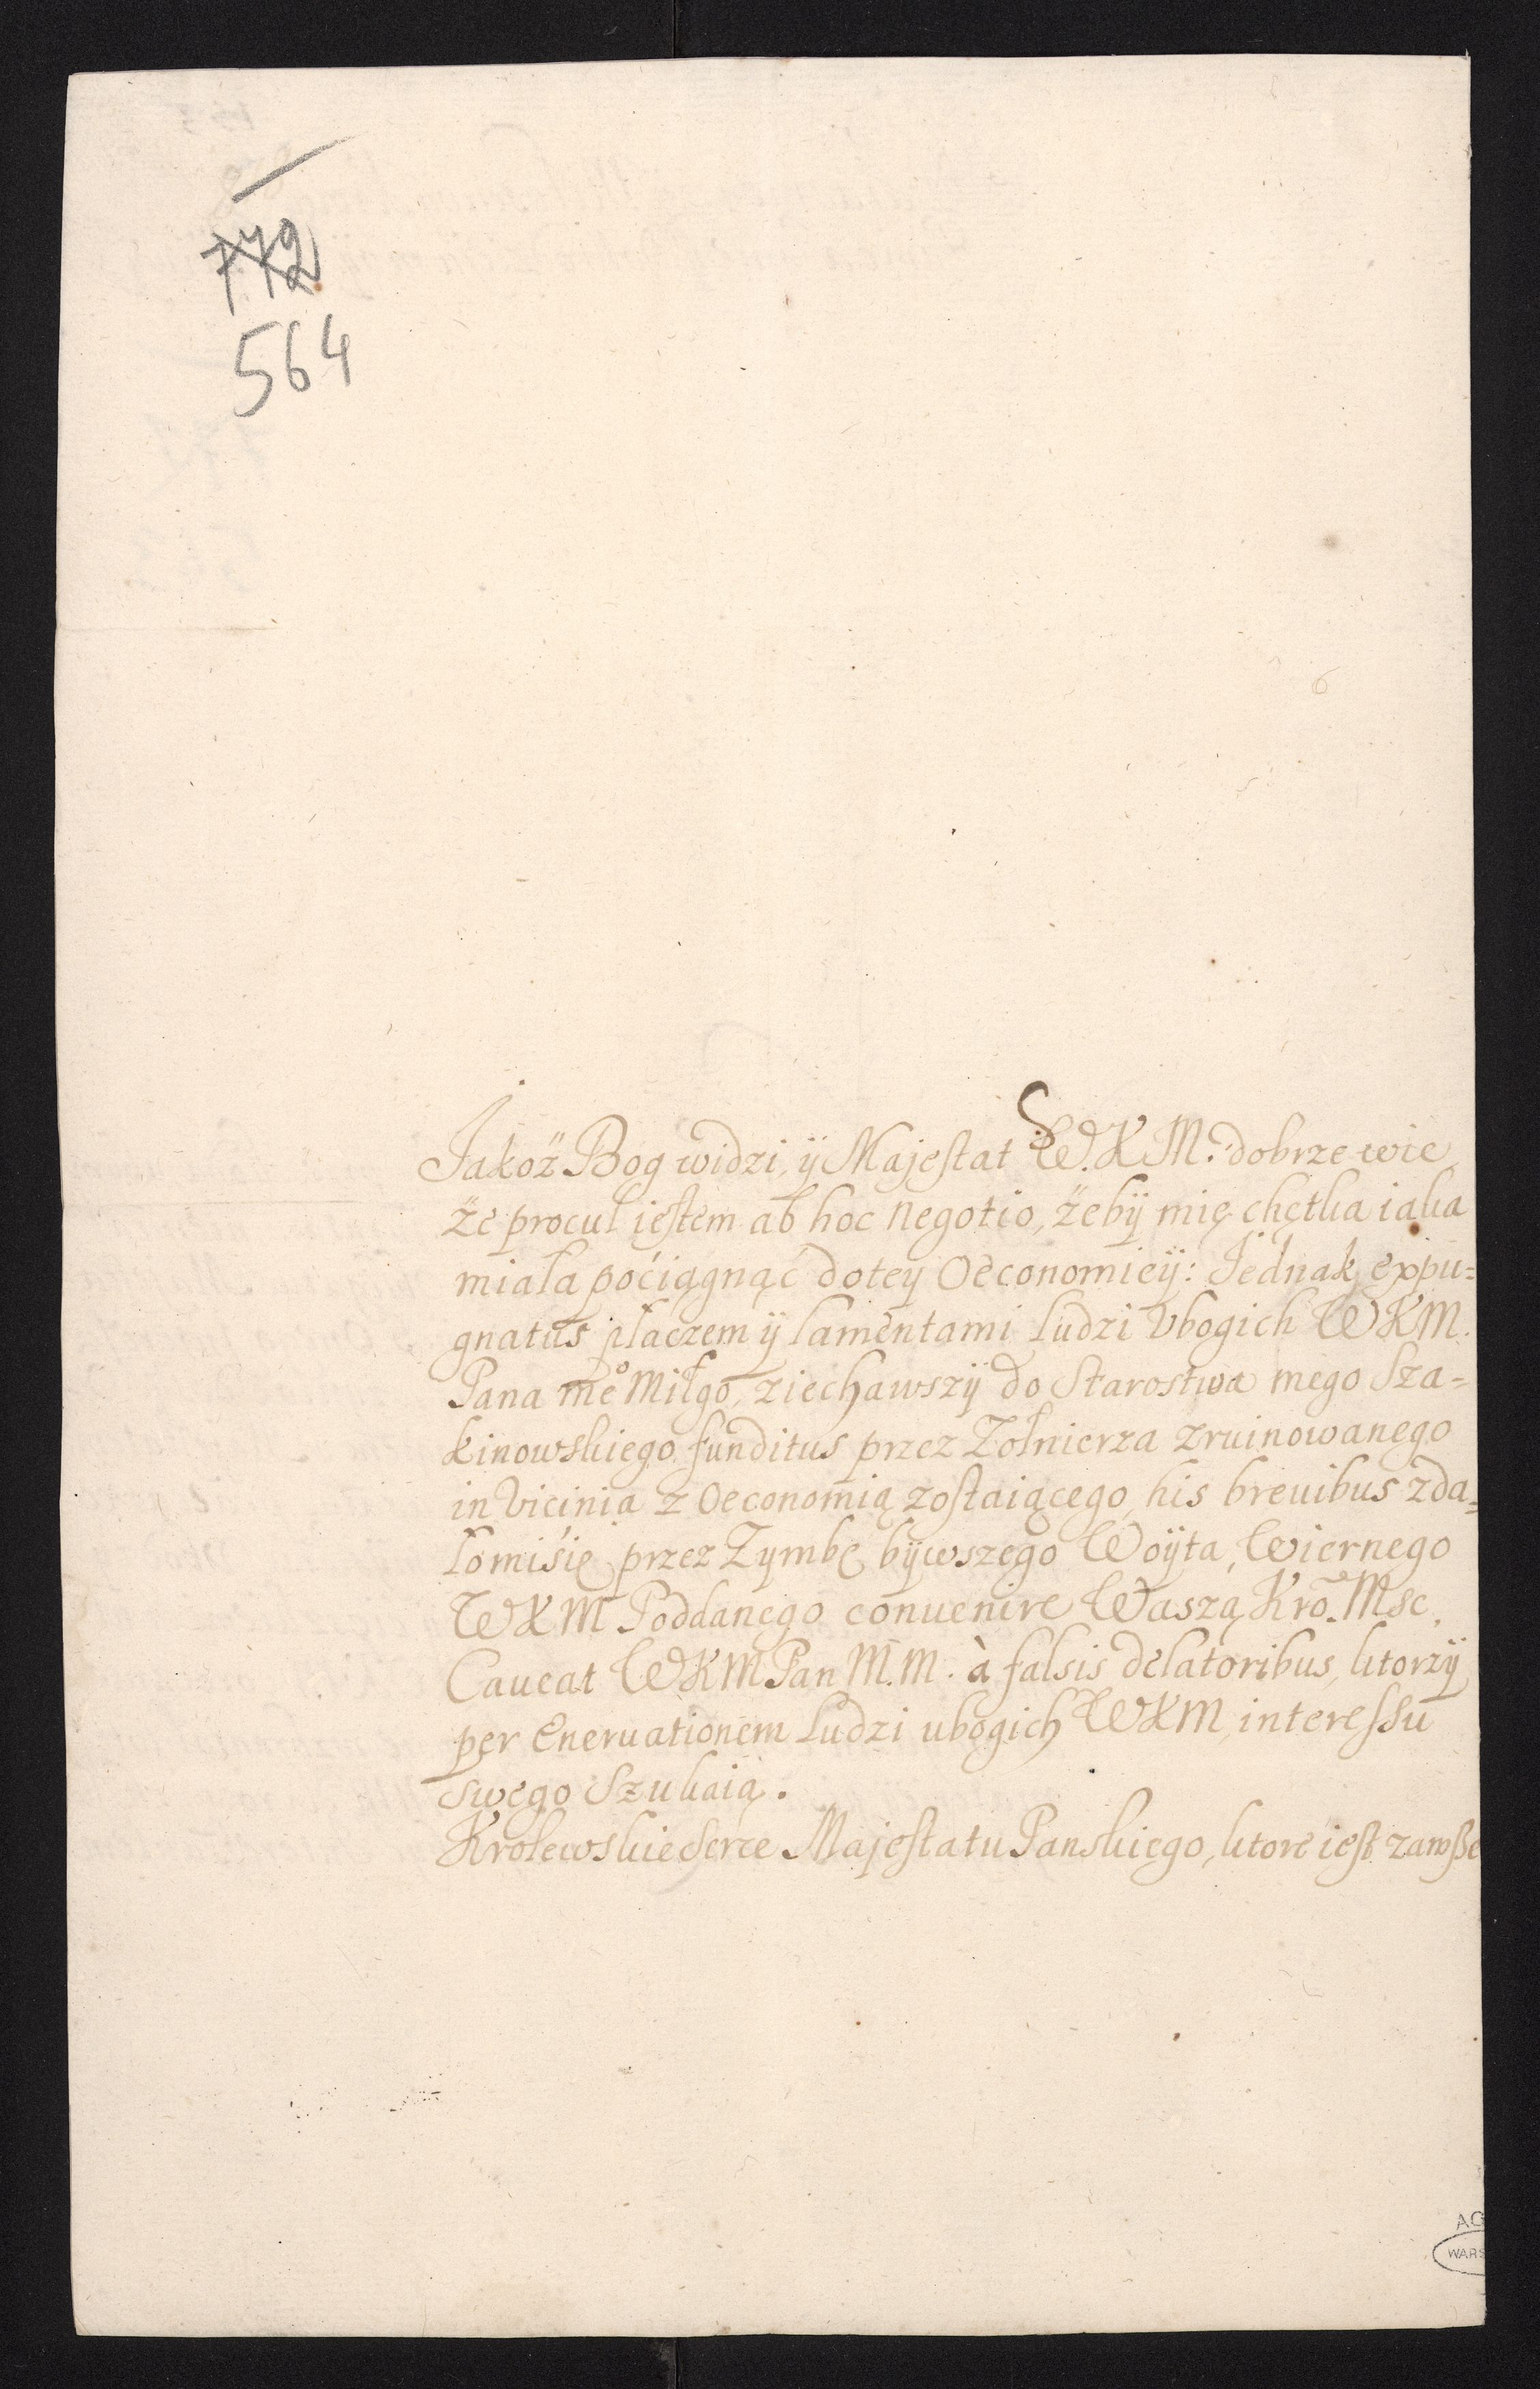 772
564
6
Jakoż Bog widzi, ÿ Majestat W.K.M. dobrze wie,
że procul iestem ab hoc negotio, żebÿ mię chętka iaka
miała poćiągnąć dotey Oeconomieÿ: Jednak expu=
gnatus płaczem ÿ lamentami ludzi Vbogich WKM.
Pana meo Miłgo, ziechawszÿ do Starostwa mego Sza=
kinowskiego funditus przez Zołnierza zruinowanego
in Vicinia z Oeconomią zostaiącego, his breuibus zda=
łomiśię przez Zymbę bÿwszego Woÿta, Wiernego
WKM Poddanego conuenire Waszą Kro. Msc.
Caueat WKM Pan M.M. à falsis delatoribus, ktorzÿ
per Eneruationem Ludzi ubogich WKM, interessu
swego Szukaią.
Krolewskie Serce Majestatu Panskiego, ktore iest zawsze
AG
WARS